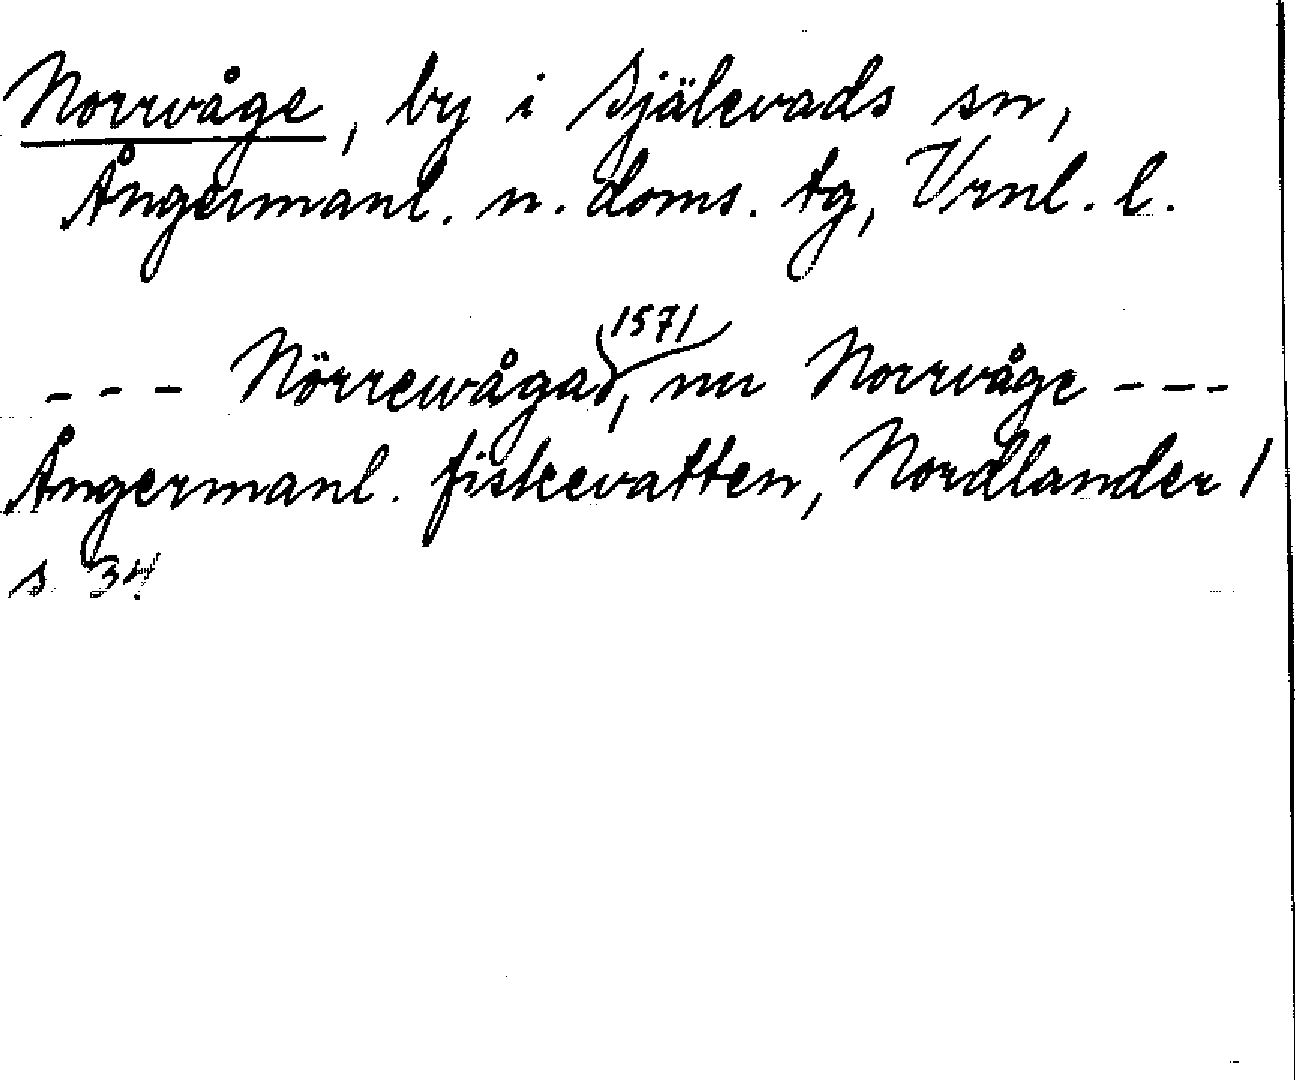 Norrvåge, by i Själevads sn,
Ångermanl. n. doms. tg, Vrnl. l.
--- Nörrewåga 1571, nu Norrvåge ---
Ångermanl. fiskevatten, Nordlander 1
s 34